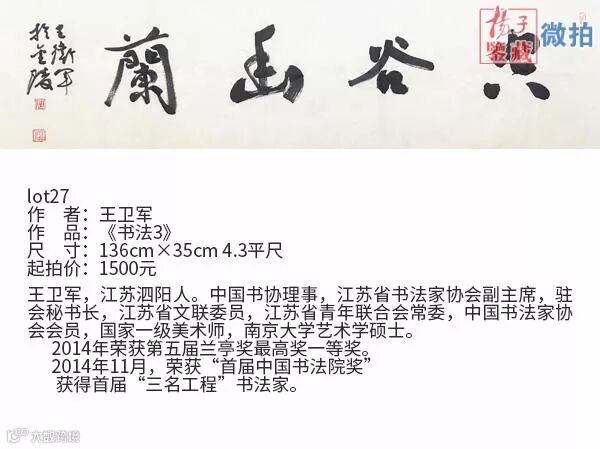 空谷幽蘭
王衛軍
於金陵
揚子
鑒藏
微拍
lot27
作 者：王卫军
作 品：《书法3》
尺 寸：136cm×35cm 4.3平尺
起拍价：1500元
王卫军，江苏泗阳人。中国书协理事，江苏省书法家协会副主席，驻
会秘书长，江苏省文联委员，江苏省青年联合会常委，中国书法家协
会会员，国家一级美术师，南京大学艺术学硕士。
2014年荣获第五届兰亭奖最高奖一等奖。
2014年11月，荣获“首届中国书法院奖”
获得首届“三名工程”书法家。
跨境